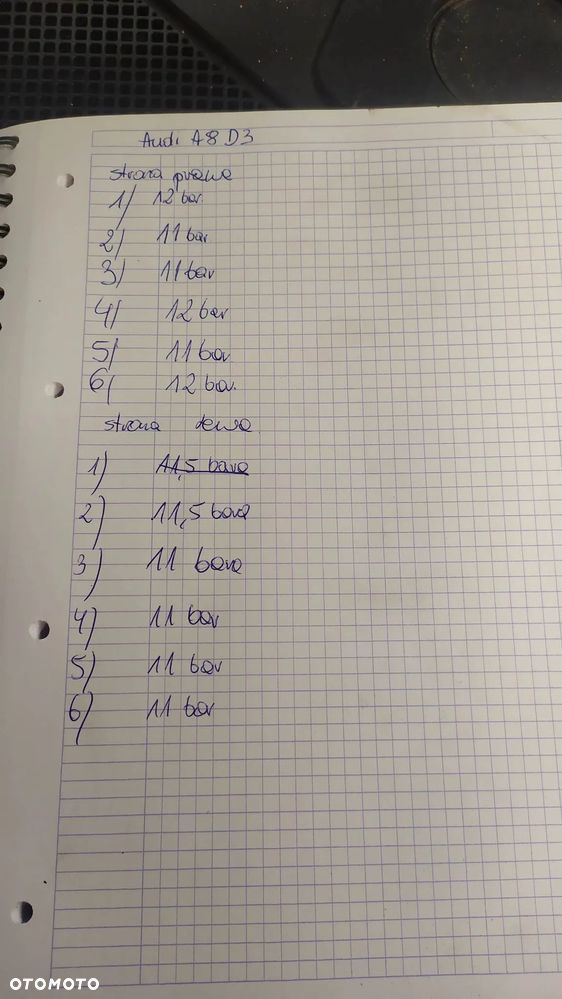 Audi A8 D3
strona prawa
1) 12 bar
2) 11 bar
3) 11 bar
4) 12 bar
5) 11 bar
6) 12 bar.
strona lewa
1) 11,5 bara
2) 11,5 bara
3) 11 bara
4) 11 bar
5) 11 bar
6) 11 bar
OTOMOTO